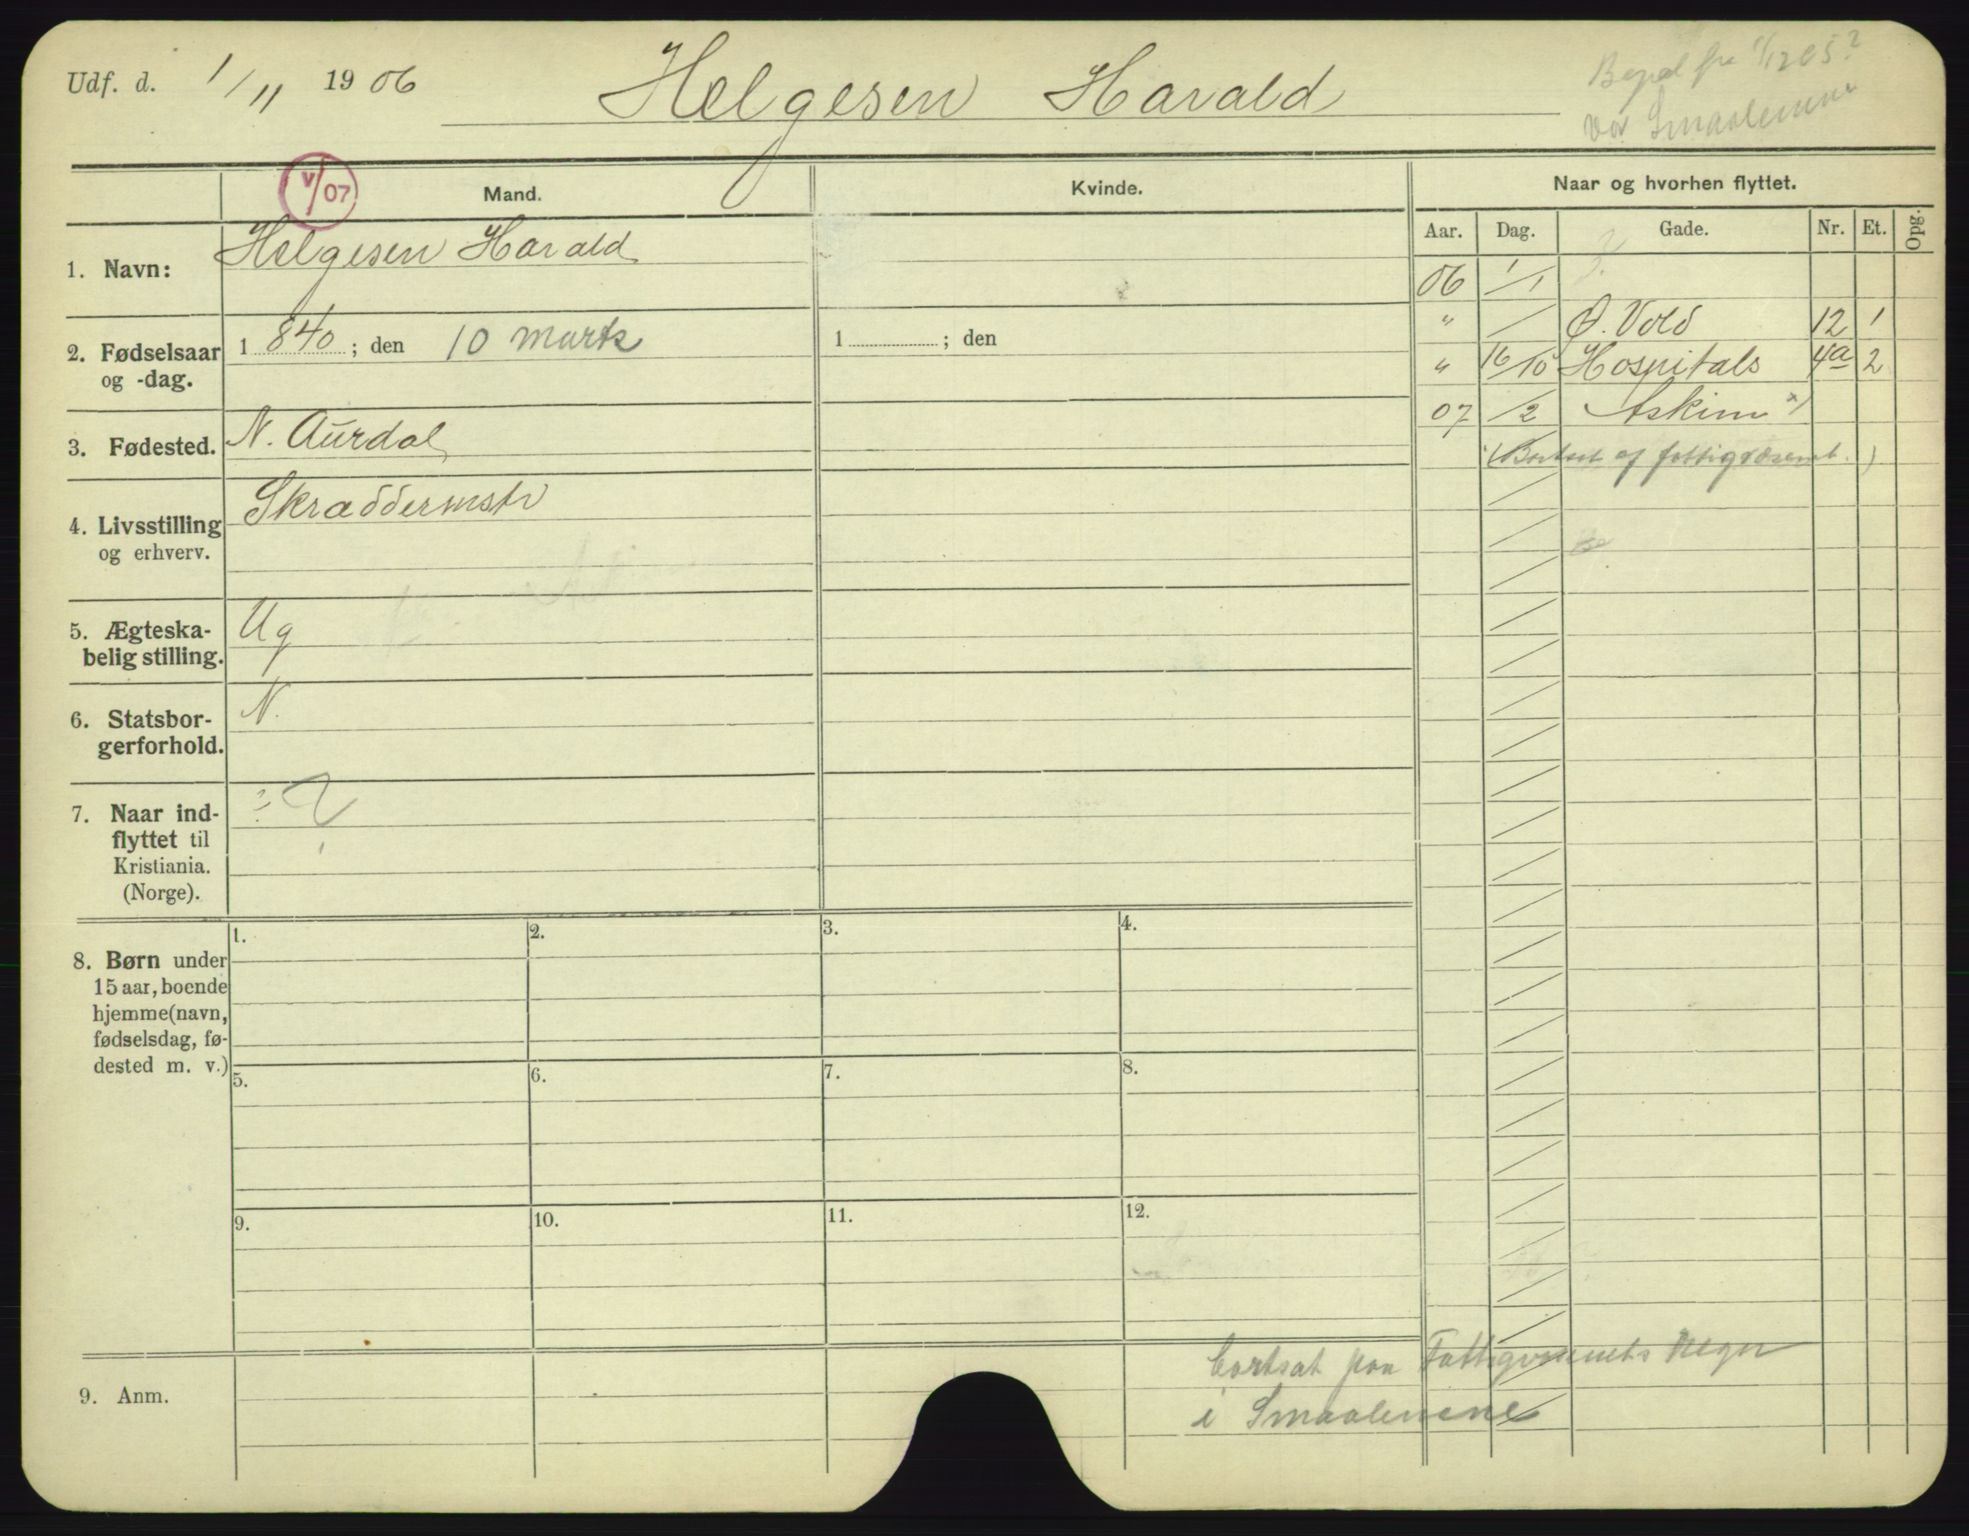 Udf. d. 1/11 1906 Helgesen Harald
fra 1/12 05?
Smaalenene
V/07
Mand.
Kvinde.
Naar og hvorhen flyttet.
Aar. Dag. Gade. Nr. Et. Opg.
1. Navn: Helgesen Harald
06 1/1 ?
" / Ø. Vold 12 1
2. Fødselsaar og -dag. 1 840 ; den 10 marts
1 ; den
" 16/10 Hospitals 4a 2
07 /2 Askim x)
3. Fødested. N. Aurdal
(Bortsat af fattigvæsenet.)
4. Livsstilling og erhverv. Skræddermstr
5. Ægteska-
belig stilling. Ug
6. Statsbor-
gerforhold. N.
7. Naar ind- ? ?
flyttet til
Kristiania.
(Norge).
8. Børn under
15 aar, boende
hjemme (navn,
fødselsdag, fø-
dested m. v.)
1. 2. 3. 4.
5. 6. 7. 8.
9. 10. 11. 12.
9. Anm.
bortsat paa Fattigvæsenets Regn
i Smaalenene